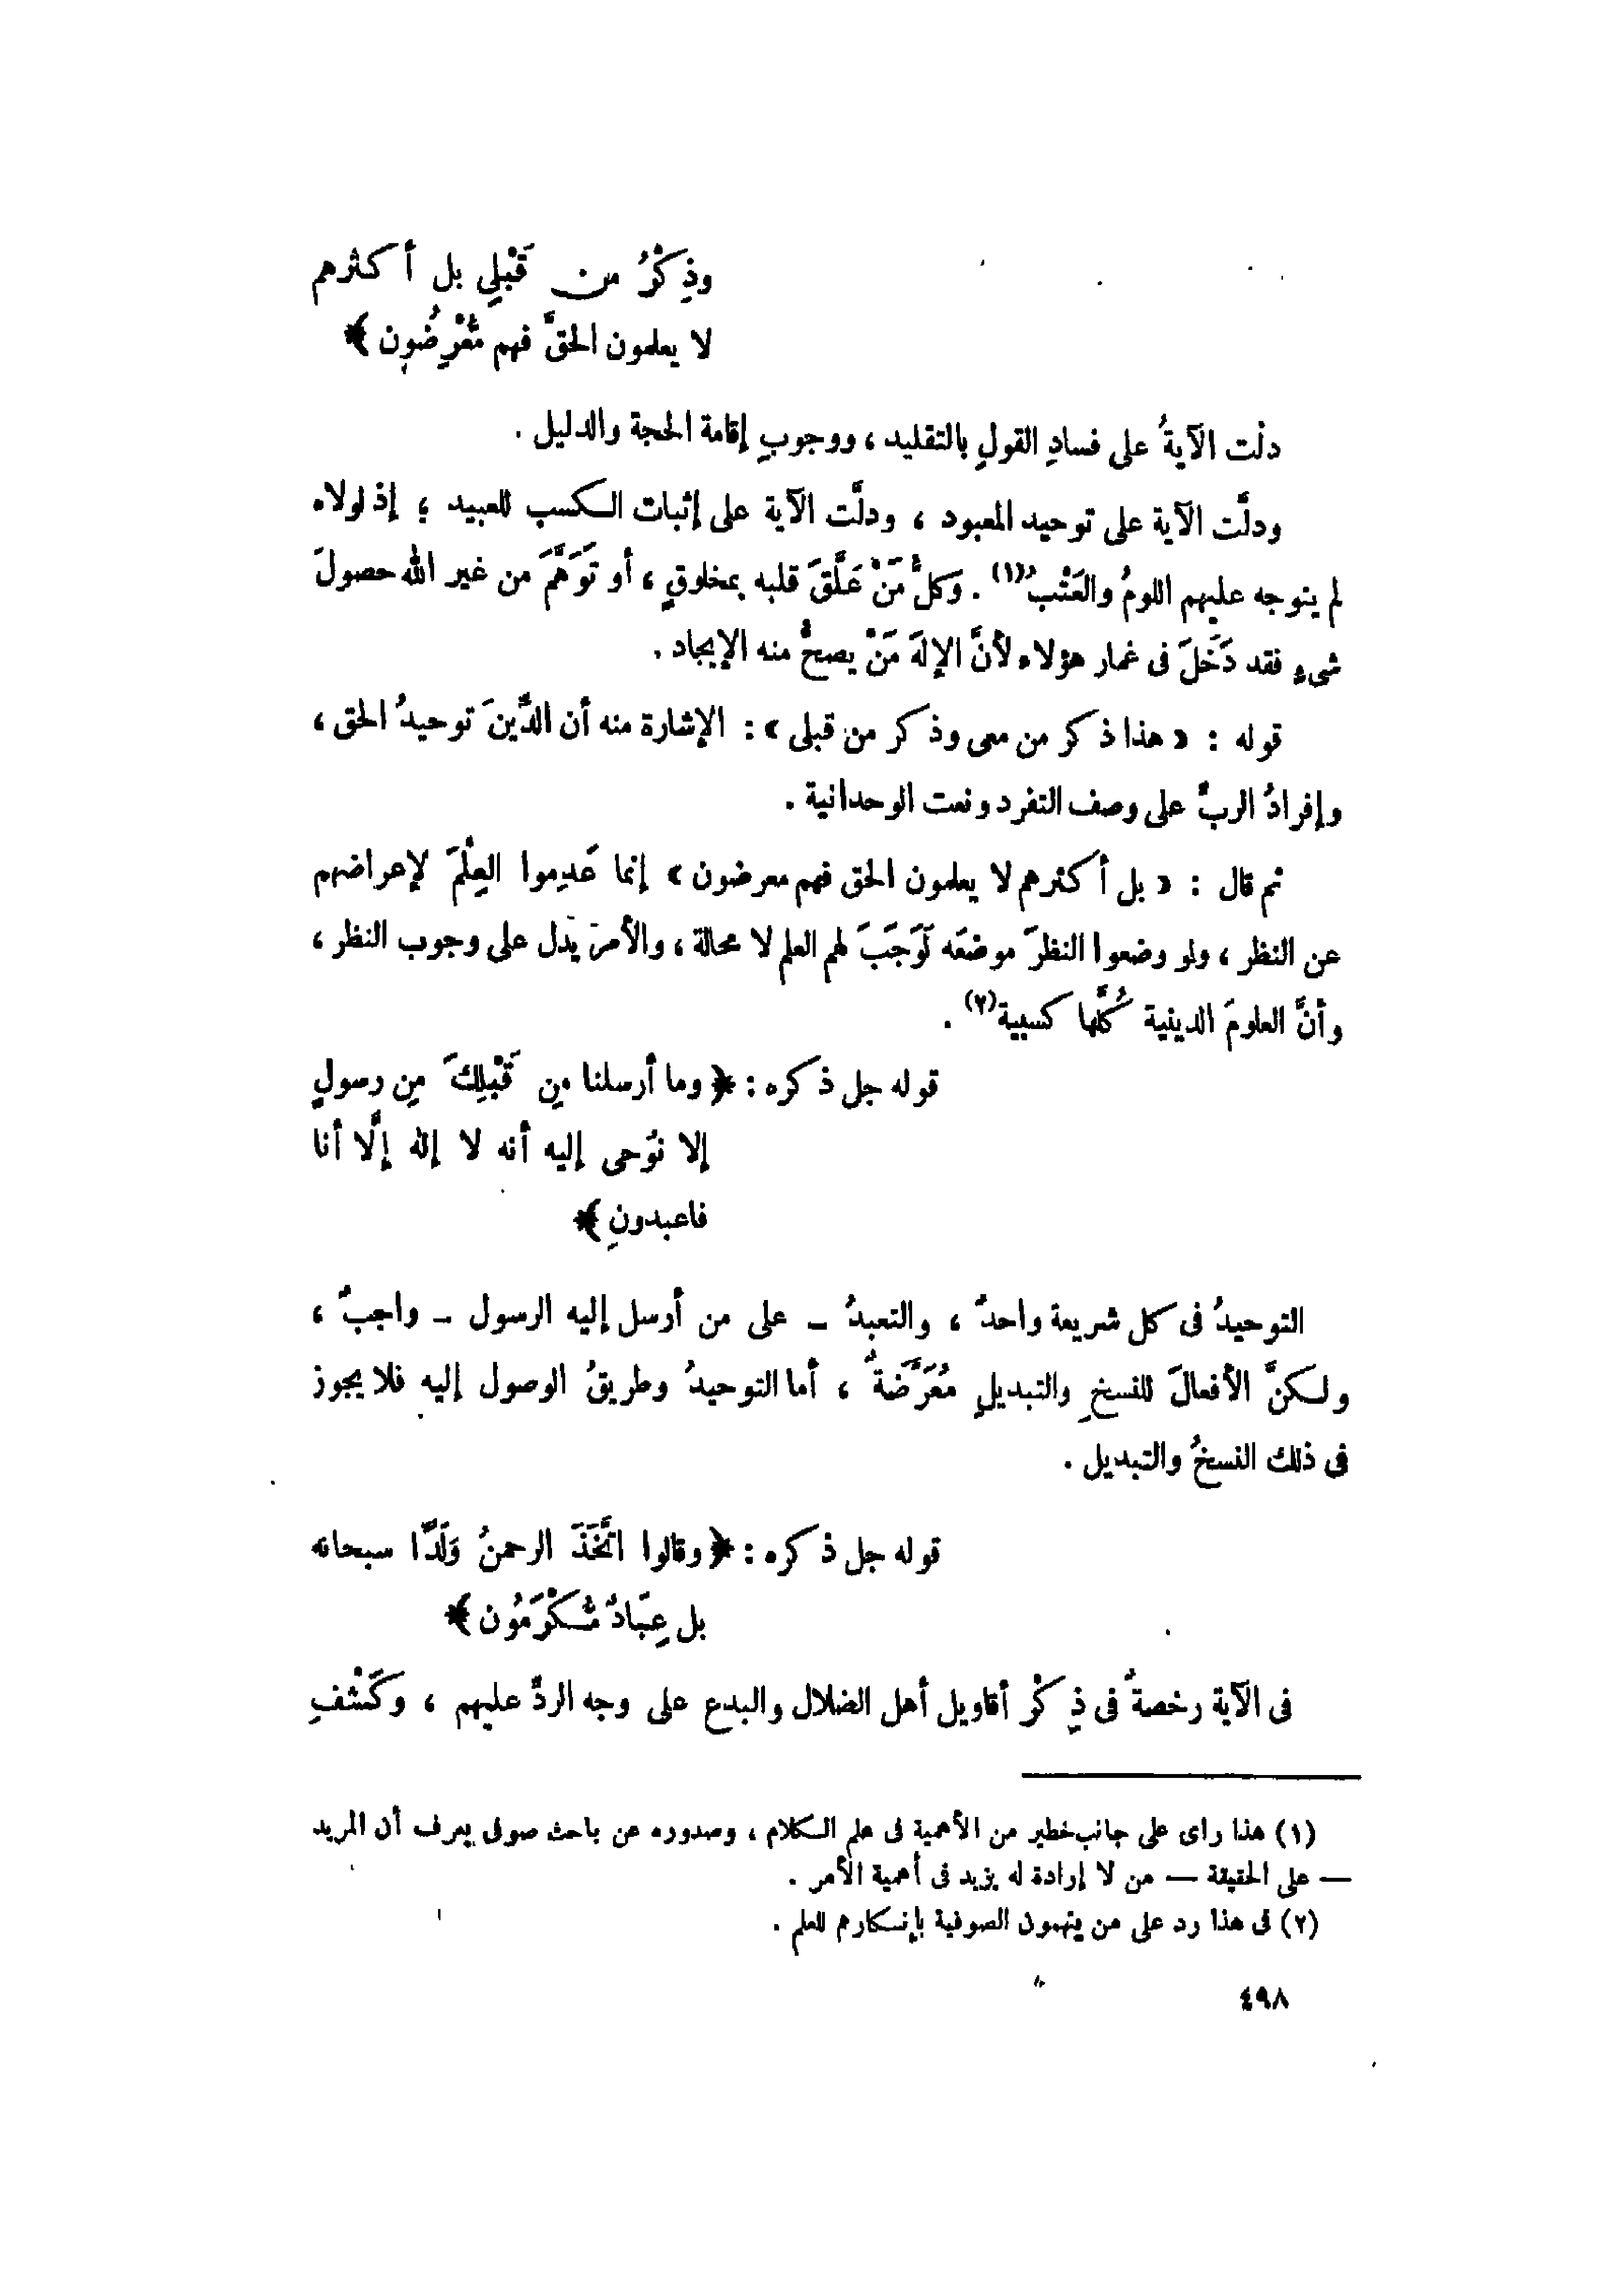 وذِكْرُ من قَبْلِي بل أكثرهم
لا يعلمون الحقَّ فهم مُّعْرِضُون ﴾
دلَّت الآيةُ على فسادِ القولِ بالتقليد ، ووجوبِ إقامة الحجة والدليل .
ودلَّت الآية على توحيد المعبود ، ودلَّت الآية على إثبات الكسب للعبيد ؛ إذ لولاه
لم يتوجه عليهم اللومُ والعَتْبُ(١) . وَكلُّ مَنْ عَلَّقَ قلبه بمخلوقٍ ، أو تَوَهَّمَ من غير الله حصولَ
شىءٍ فقد دَخَلَ فى غمار هؤلاء لأنَّ الإلهَ مَنْ يصحُّ منه الإيجاد .
قوله : « هذا ذكر من معى وذكر من قبلى » : الإشارة منه أن الدِّينَ توحيدُ الحق ،
وإفرادُ الربِّ على وصف التفرد ونعت الوحدانية .
ثم قال : « بل أكثرهم لا يعلمون الحق فهم معرضون » إنما عَدِموا العِلْمَ لإعراضهم
عن النظر ، ولو وضعوا النظرَ موضعَه لَوَجَبَ لهم العلم لا محالة ، والأمرَ يدل على وجوب النظر ،
وأنَّ العلومَ الدينية كُلَّها كسبية(٢) .
قوله جل ذكره : ﴿ وما أرسلنا مِن قَبْلِكَ مِن رسولٍ
إلا نُوحى إليه أنه لا إله إلَّا أنا
فاعبدونِ ﴾
التوحيدُ فى كل شريعة واحدٌ ، والتعبدُ – على من أرسل إليه الرسول – واجبٌ ،
ولكنَّ الأفعالَ للنسخِ والتبديلِ مُعَرَّضةٌ ، أما التوحيدُ وطريقُ الوصول إليه فلا يجوز
فى ذلك النسخُ والتبديل .
قوله جل ذكره : ﴿ وقالوا اتَّخَذَ الرحمنُ وَلَدًا سبحانه
بل عِبَادٌ مُّكْرَمُون ﴾
فى الآية رخصةٌ فى ذِكْرِ أقاويل أهل الضلال والبدع على وجه الردِّ عليهم ، وكَشْفِ
(١) هذا رأى على جانب خطير من الأهمية فى علم الكلام ، وصدوره عن باحث صوفى يعرف أن المريد
— على الحقيقة — من لا إرادة له يزيد فى أهمية الأمر .
(٢) فى هذا رد على من يتهمون الصوفية بإنكارهم للعلم .
٤٩٨